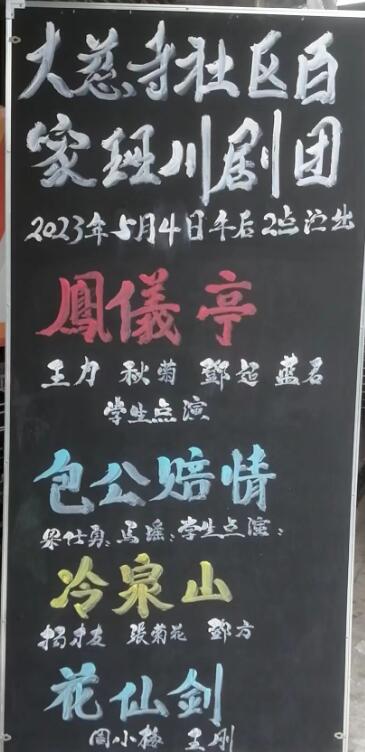 大慈寺社区百
家班川剧团
2023年5月4日午后2点演出
鳳儀亭
王力 秋菊 鄧超 蓝名
学生点演
包公赔情
梁仕勇: 馬瑶: 学生点演:
冷泉山
楊才友 張菊花 鄧方
花仙剑
周小梅 王刚